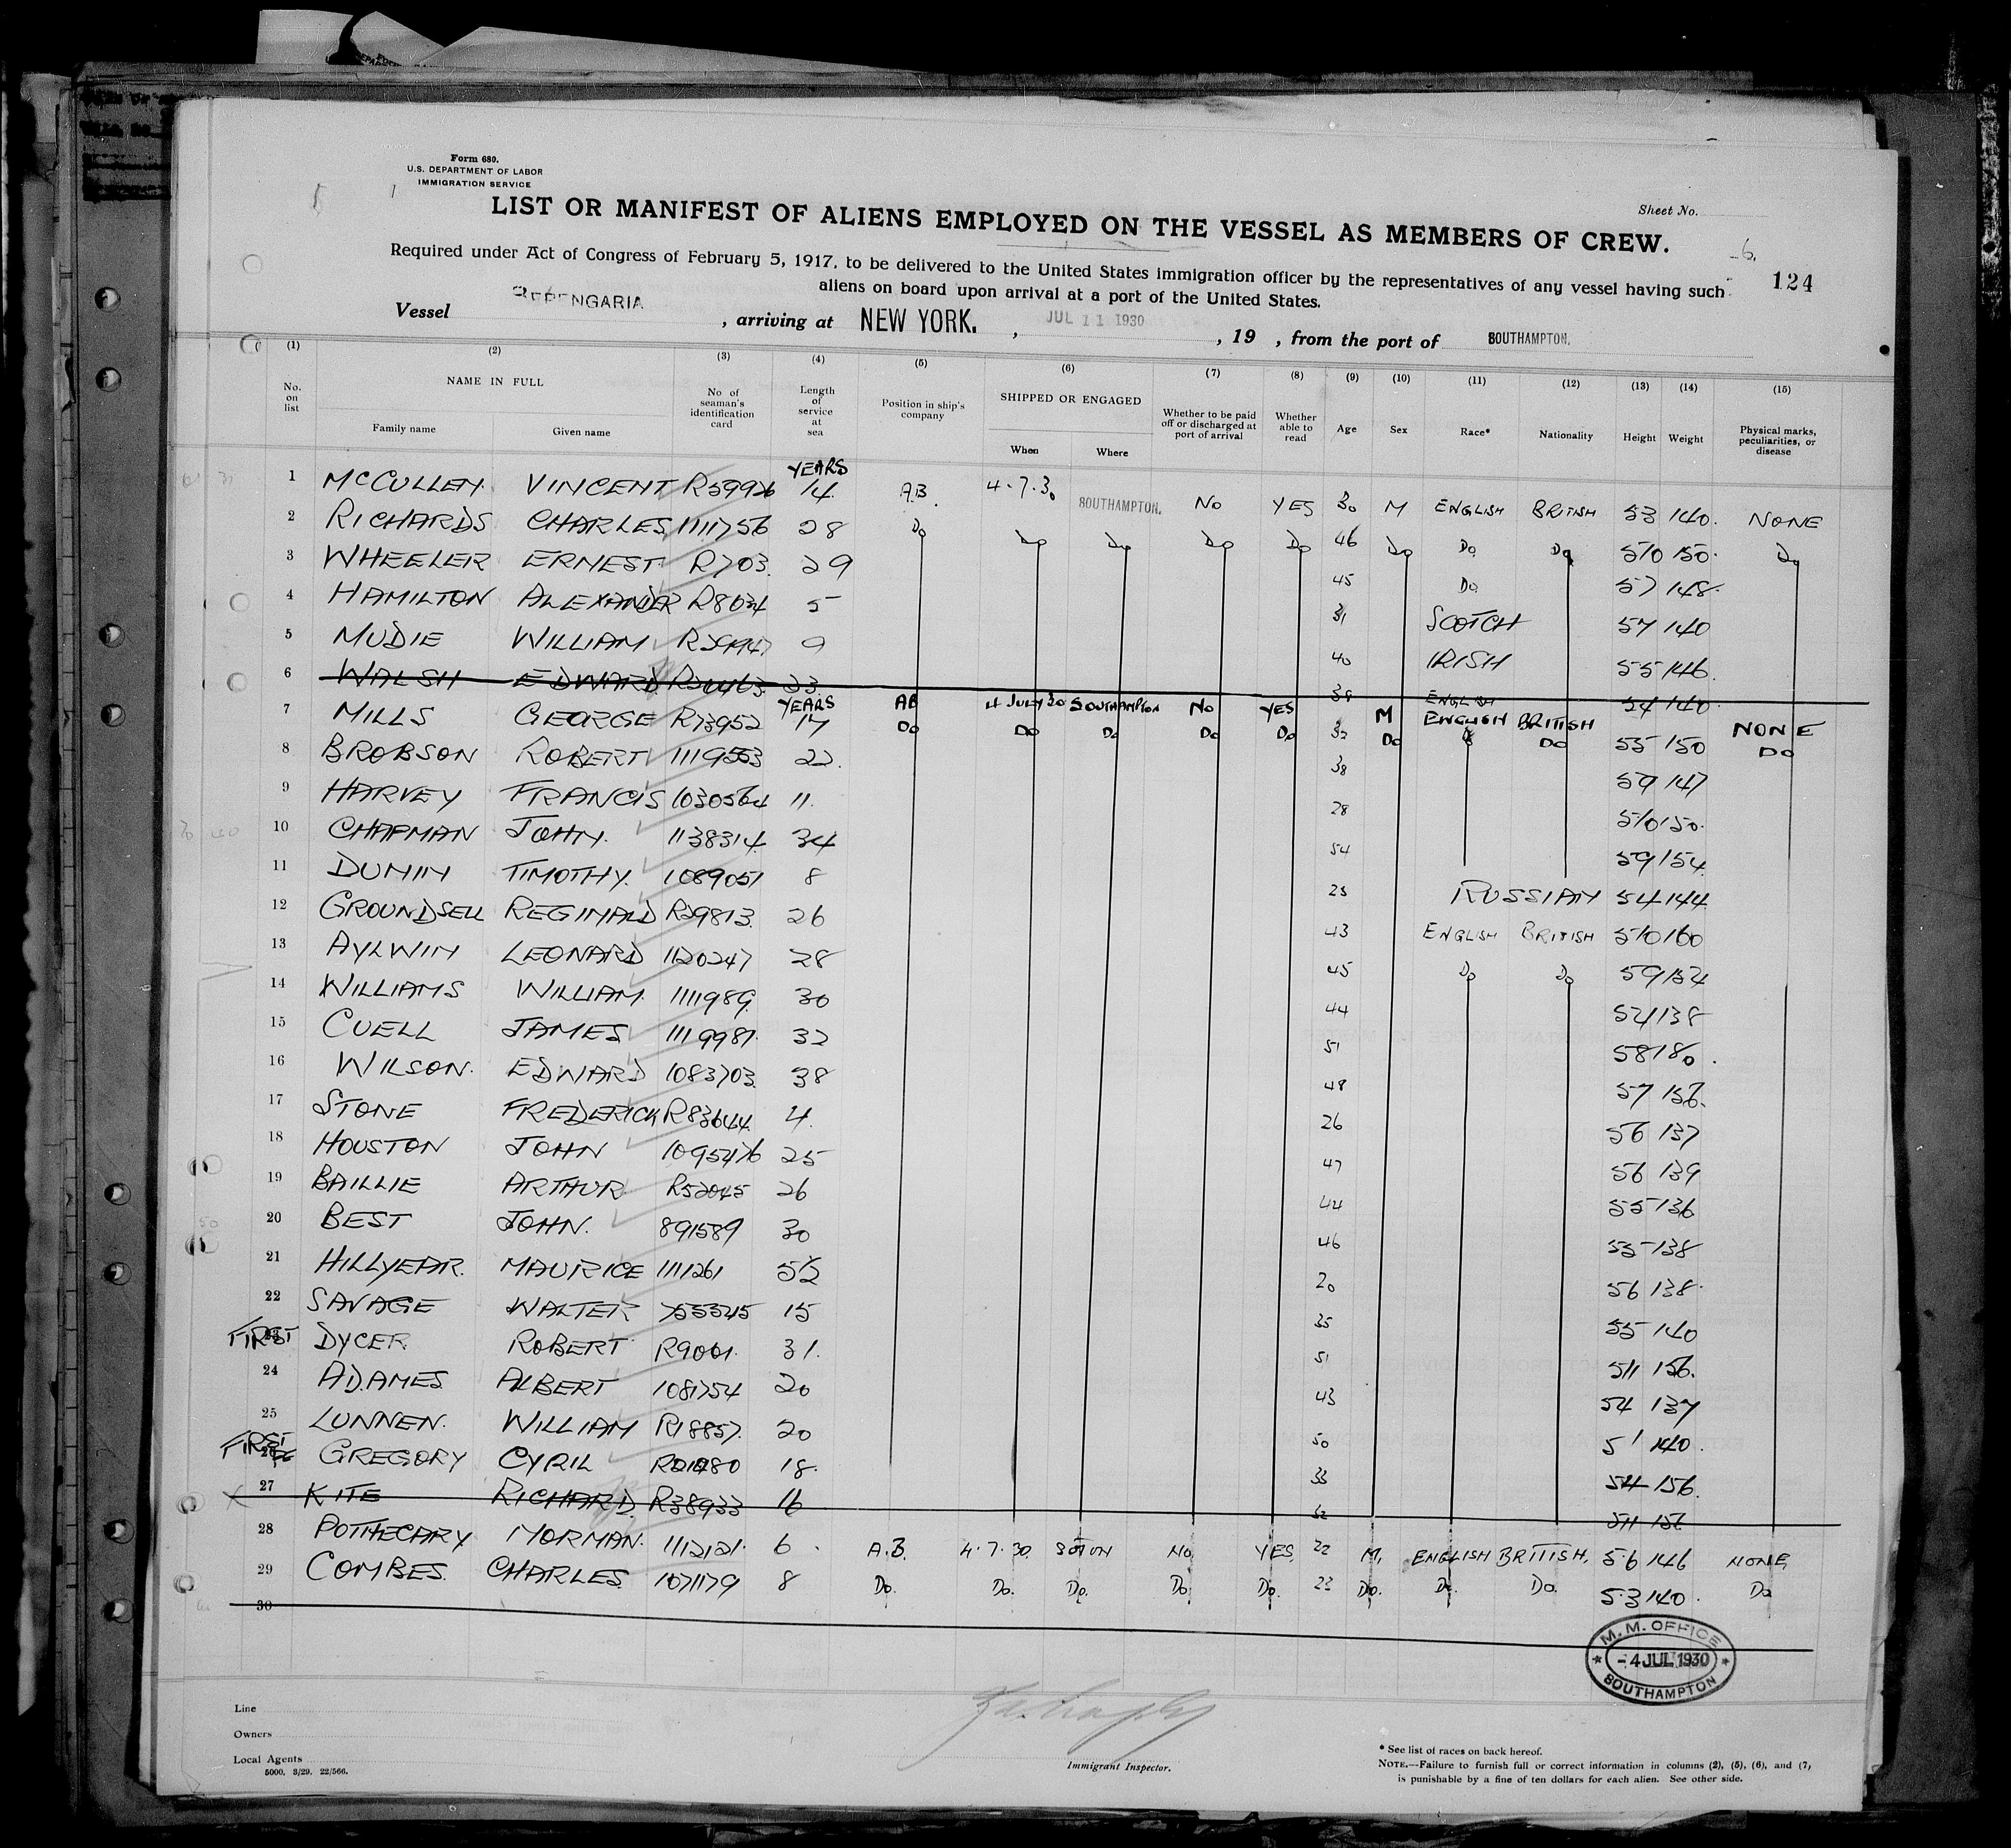 Form 680.
U.S. DEPARTMENT OF LABOR
IMMIGRATION SERVICE
Sheet No.
LIST OR MANIFEST OF ALIENS EMPLOYED ON THE VESSEL AS MEMBERS OF CREW.
6.
124
Required under Act of Congress of February 5, 1917, to be delivered to the United States immigration officer by the representatives of any vessel having such
aliens on board upon arrival at a port of the United States.
Vessel BERENGARIA, arriving at NEW YORK., JUL 11 1930, 19 , from the port of SOUTHAMPTON.
(1) (2) (3) (4) (5) (6) (7) (8) (9) (10) (11) (12) (13) (14) (15)
No. on list NAME IN FULL Family name Given name No of seaman's identification card Length of service at sea Position in ship's company SHIPPED OR ENGAGED When Where Whether to be paid off or discharged at port of arrival Whether able to read Age Sex Race* Nationality Height Weight Physical marks, peculiarities, or disease
YEARS
1 McCULLEN VINCENT 14 A.B. 4.7.30 SOUTHAMPTON. NO YES 30 M ENGLISH BRITISH 53 140. NONE
2 RICHARDS CHARLES 1111756 28 Do Do Do Do Do 46 Do Do Do 510 150. Do
3 WHEELER ERNEST R703. 29 45 Do 57 148.
4 HAMILTON ALEXANDER R8034 5 31 SCOTCH 57 140
5 MUDIE WILLIAM 9 40 IRISH 55 146.
6 WALSH EDWARD 33 38 ENGLISH 54 140.
YEARS AB 4 JULY 30 SOUTHAMPTON NO YES M ENGLISH BRITISH NONE
7 MILLS GEORGE R73952 17 Do Do Do Do Do 32 Do Do 55 150 Do
8 BROBSON ROBERT 1119553 22. 38 59 147
9 HARVEY FRANCIS 1030564 11. 28 510 150.
10 CHAPMAN JOHN. 1138314. 34 54 59 154
11 DUNIN TIMOTHY. 1089051 8 25 RUSSIAN 54 144
12 GROUNDSELL REGINALD R29813. 26 43 ENGLISH BRITISH 510 160
13 AYLWIN LEONARD 1120247 28 45 Do Do 59 154
14 WILLIAMS WILLIAM. 1111989. 30 44 138
15 CUELL JAMES 1119981. 32 51 58 180.
16 WILSON. EDWARD 1083703. 38 48 57 156.
17 STONE FREDERICK R83644. 4. 26 56 137
18 HOUSTON JOHN 1095476 25 47 56 139
19 BAILLIE ARTHUR R52045 26 44 55 136
20 BEST JOHN. 891589 30 46 55 138
21 HILLYEAR. MAURICE 1111261 5½ 20 56 138.
22 SAVAGE WALTER 15 35 55 140
FIRST 23 DYCER ROBERT R9001. 31. 51 511 156.
24 ADAMES ALBERT 1081754 20 43 54 137
25 LUNNEN. WILLIAM R18857. 20 50 5' 140.
FIRST 26 GREGORY CYRIL 18. 33 54 156.
27 KITE RICHARD R38933 16 511 156
28 POTHECARY NORMAN. 1112121. 6. A.B. 4.7.30. SOTON NO. YES. 22 M. ENGLISH BRITISH. 5.6 146 NONE
29 COMBES. CHARLES. 1071179 8 Do. Do. Do. Do. Do. 23 Do. Do. Do. 5.3 140. Do
30
M. M. OFFICE
-4 JUL 1930
SOUTHAMPTON
Line
Owners
Local Agents
5000. 3/29. 22/566.
Immigrant Inspector.
* See list of races on back hereof.
NOTE.—Failure to furnish full or correct information in columns (2), (5), (6), and (7)
is punishable by a fine of ten dollars for each alien. See other side.